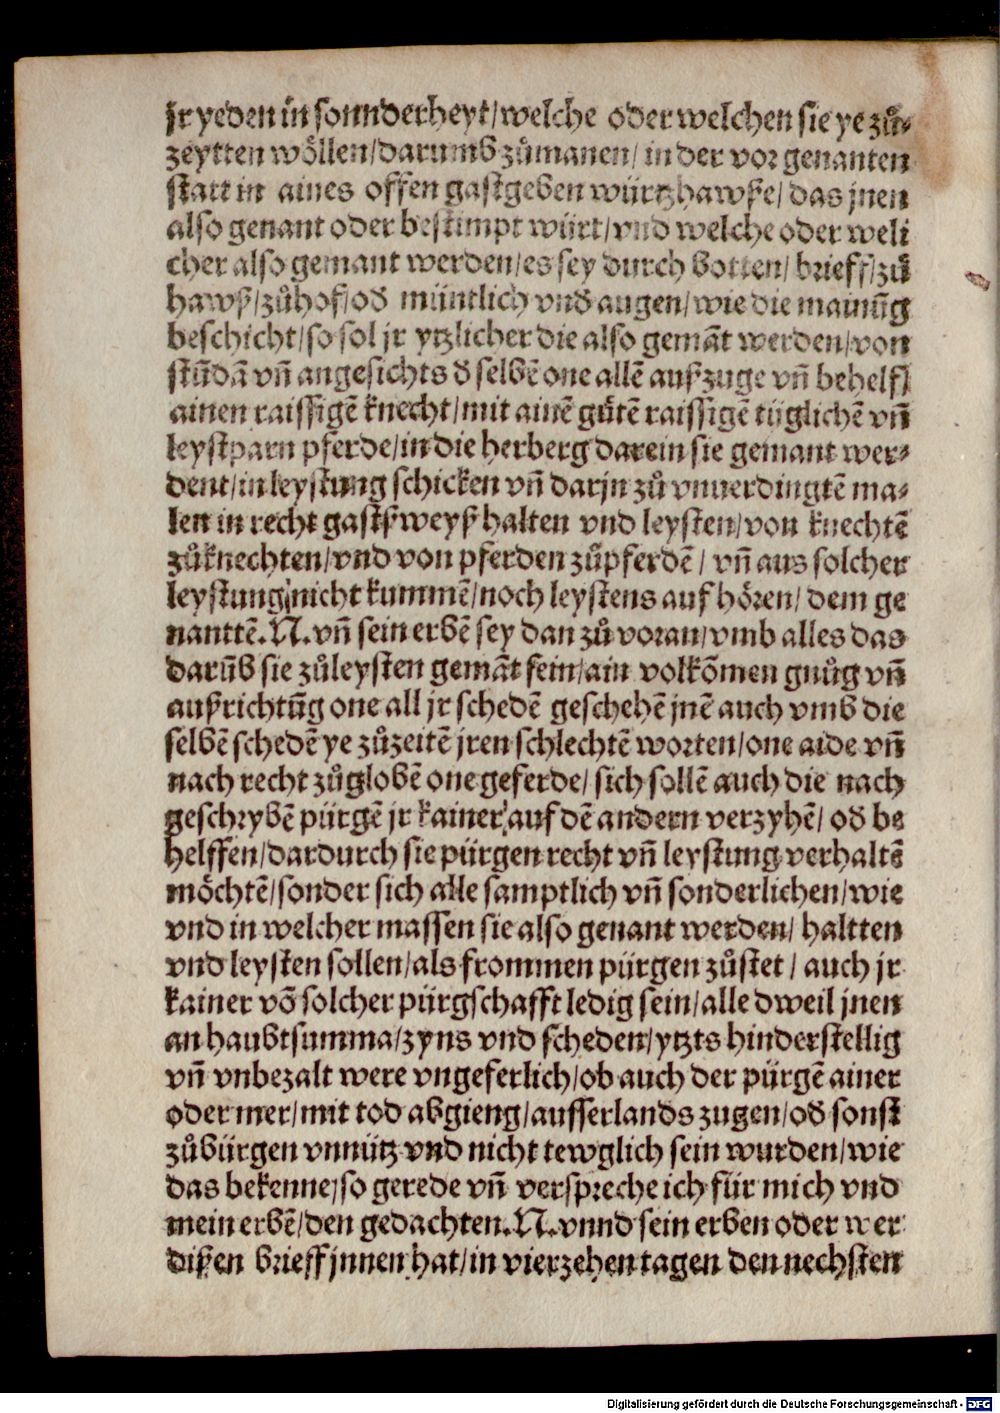 jr yeden in sonnderheyt/welche oder welchen sie ye zů⸗
zeytten wöllen/darumb zůmanen/ in der vor genanten
statt in aines offen gastgeben würtzhawße/ das jnen
also genant oder bestimpt würt/vnd welche oder weli
cher also gemant werden/es sey durch botten/ brieff/zů
hawß/zůhof/oď müntlich vnď augen/wie die mainūg
beschicht/so sol jr ytzlicher die also gemāt werden/von
stūdā vñ angesichts ď selbē one allē außzuge vñ behelf/
ainen raissigē knecht/mit ainē gůtē raissigē tüglichē vñ
leystparn pferde/in die herberg darein sie gemant wer⸗
dent/in leystung schicken vñ darjn zů vnuerdingtē ma⸗
len in recht gastßweyß halten vnd leysten/von knechtē
zůknechten/vnd von pferden zůpferdē/ vñ aus solcher
leystung nicht kummē/noch leystens auf hören/ dem ge
nanttē.N.vñ sein erbē sey dan zů voran/vmb alles das
darūb sie zůleysten gemāt sein/ain volkōmen gnůg vñ
außrichtūg one all jr schedē geschehē jnē auch vmb die
selbē schedē ye zůzeitē jren schlechtē worten/one aide vñ
nach recht zůglobē one geferde/ sich sollē auch die nach
geschrybē pürgē jr kainer auf dē andern verzyhē/ oď be
helffen/dardurch sie pürgen recht vñ leystung verhaltē
möchtē/sonder sich alle samptlich vñ sonderlichen/wie
vnd in welcher massen sie also genant werden/ haltten
vnd leysten sollen/als frommen pürgen zůstet/ auch jr
kainer vō solcher pürgschafft ledig sein/alle dweil jnen
an haubtsumma/zyns vnd scheden/ytzts hinderstellig
vñ vnbezalt were vngeferlich/ob auch der pürgē ainer
oder mer/mit tod abgieng/ausserlands zugen/oď sonst
zůbürgen vnnütz vnd nicht tewglich sein wurden/wie
das bekenne/so gerede vñ verspreche ich für mich vnd
mein erbē/den gedachten.N.vnnd sein erben oder wer
dißen brieff jnnen hat/in vierzehen tagen den nechsten
Digitalisierung gefördert durch die Deutsche Forschungsgemeinschaft - DFG